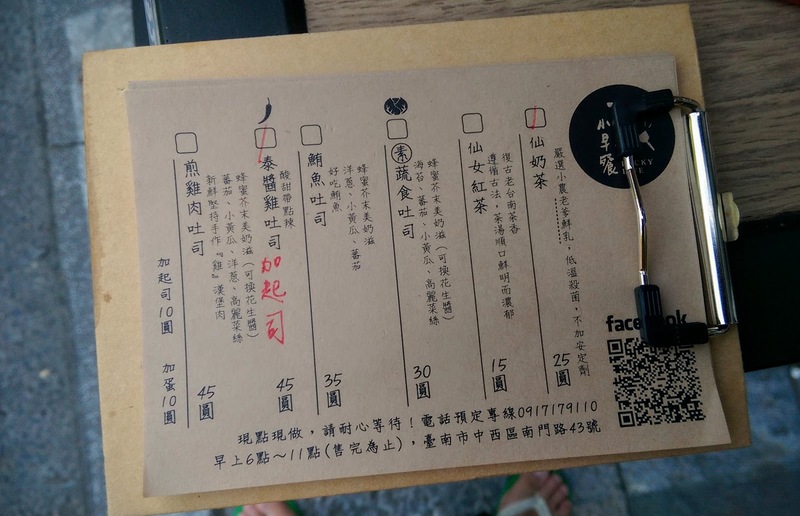 小早餐
仙奶茶
嚴選小農老爹鮮乳，低溫殺菌，不加安定劑
25圓
仙女紅茶
復古老台南茶香
遵循古法，茶湯順口鮮明而濃郁
15圓
素蔬食吐司
蜂蜜芥末美奶滋(可換花生醬)
海苔、蕃茄、小黃瓜、高麗菜絲
30圓
鮪魚吐司
蜂蜜芥末美奶滋
洋蔥、小黃瓜、蕃茄
好吃鮪魚
35圓
泰醬雞吐司 加起司
酸甜帶點辣
45圓
煎雞肉吐司
蜂蜜芥末美奶滋(可換花生醬)
蕃茄、小黃瓜、洋蔥、高麗菜絲
新鮮堅持手作『雞』漢堡肉
45圓
加起司10圓 加蛋10圓
現點現做，請耐心等待！電話預定專線0917179110
早上6點～11點(售完為止)，臺南市中西區南門路43號